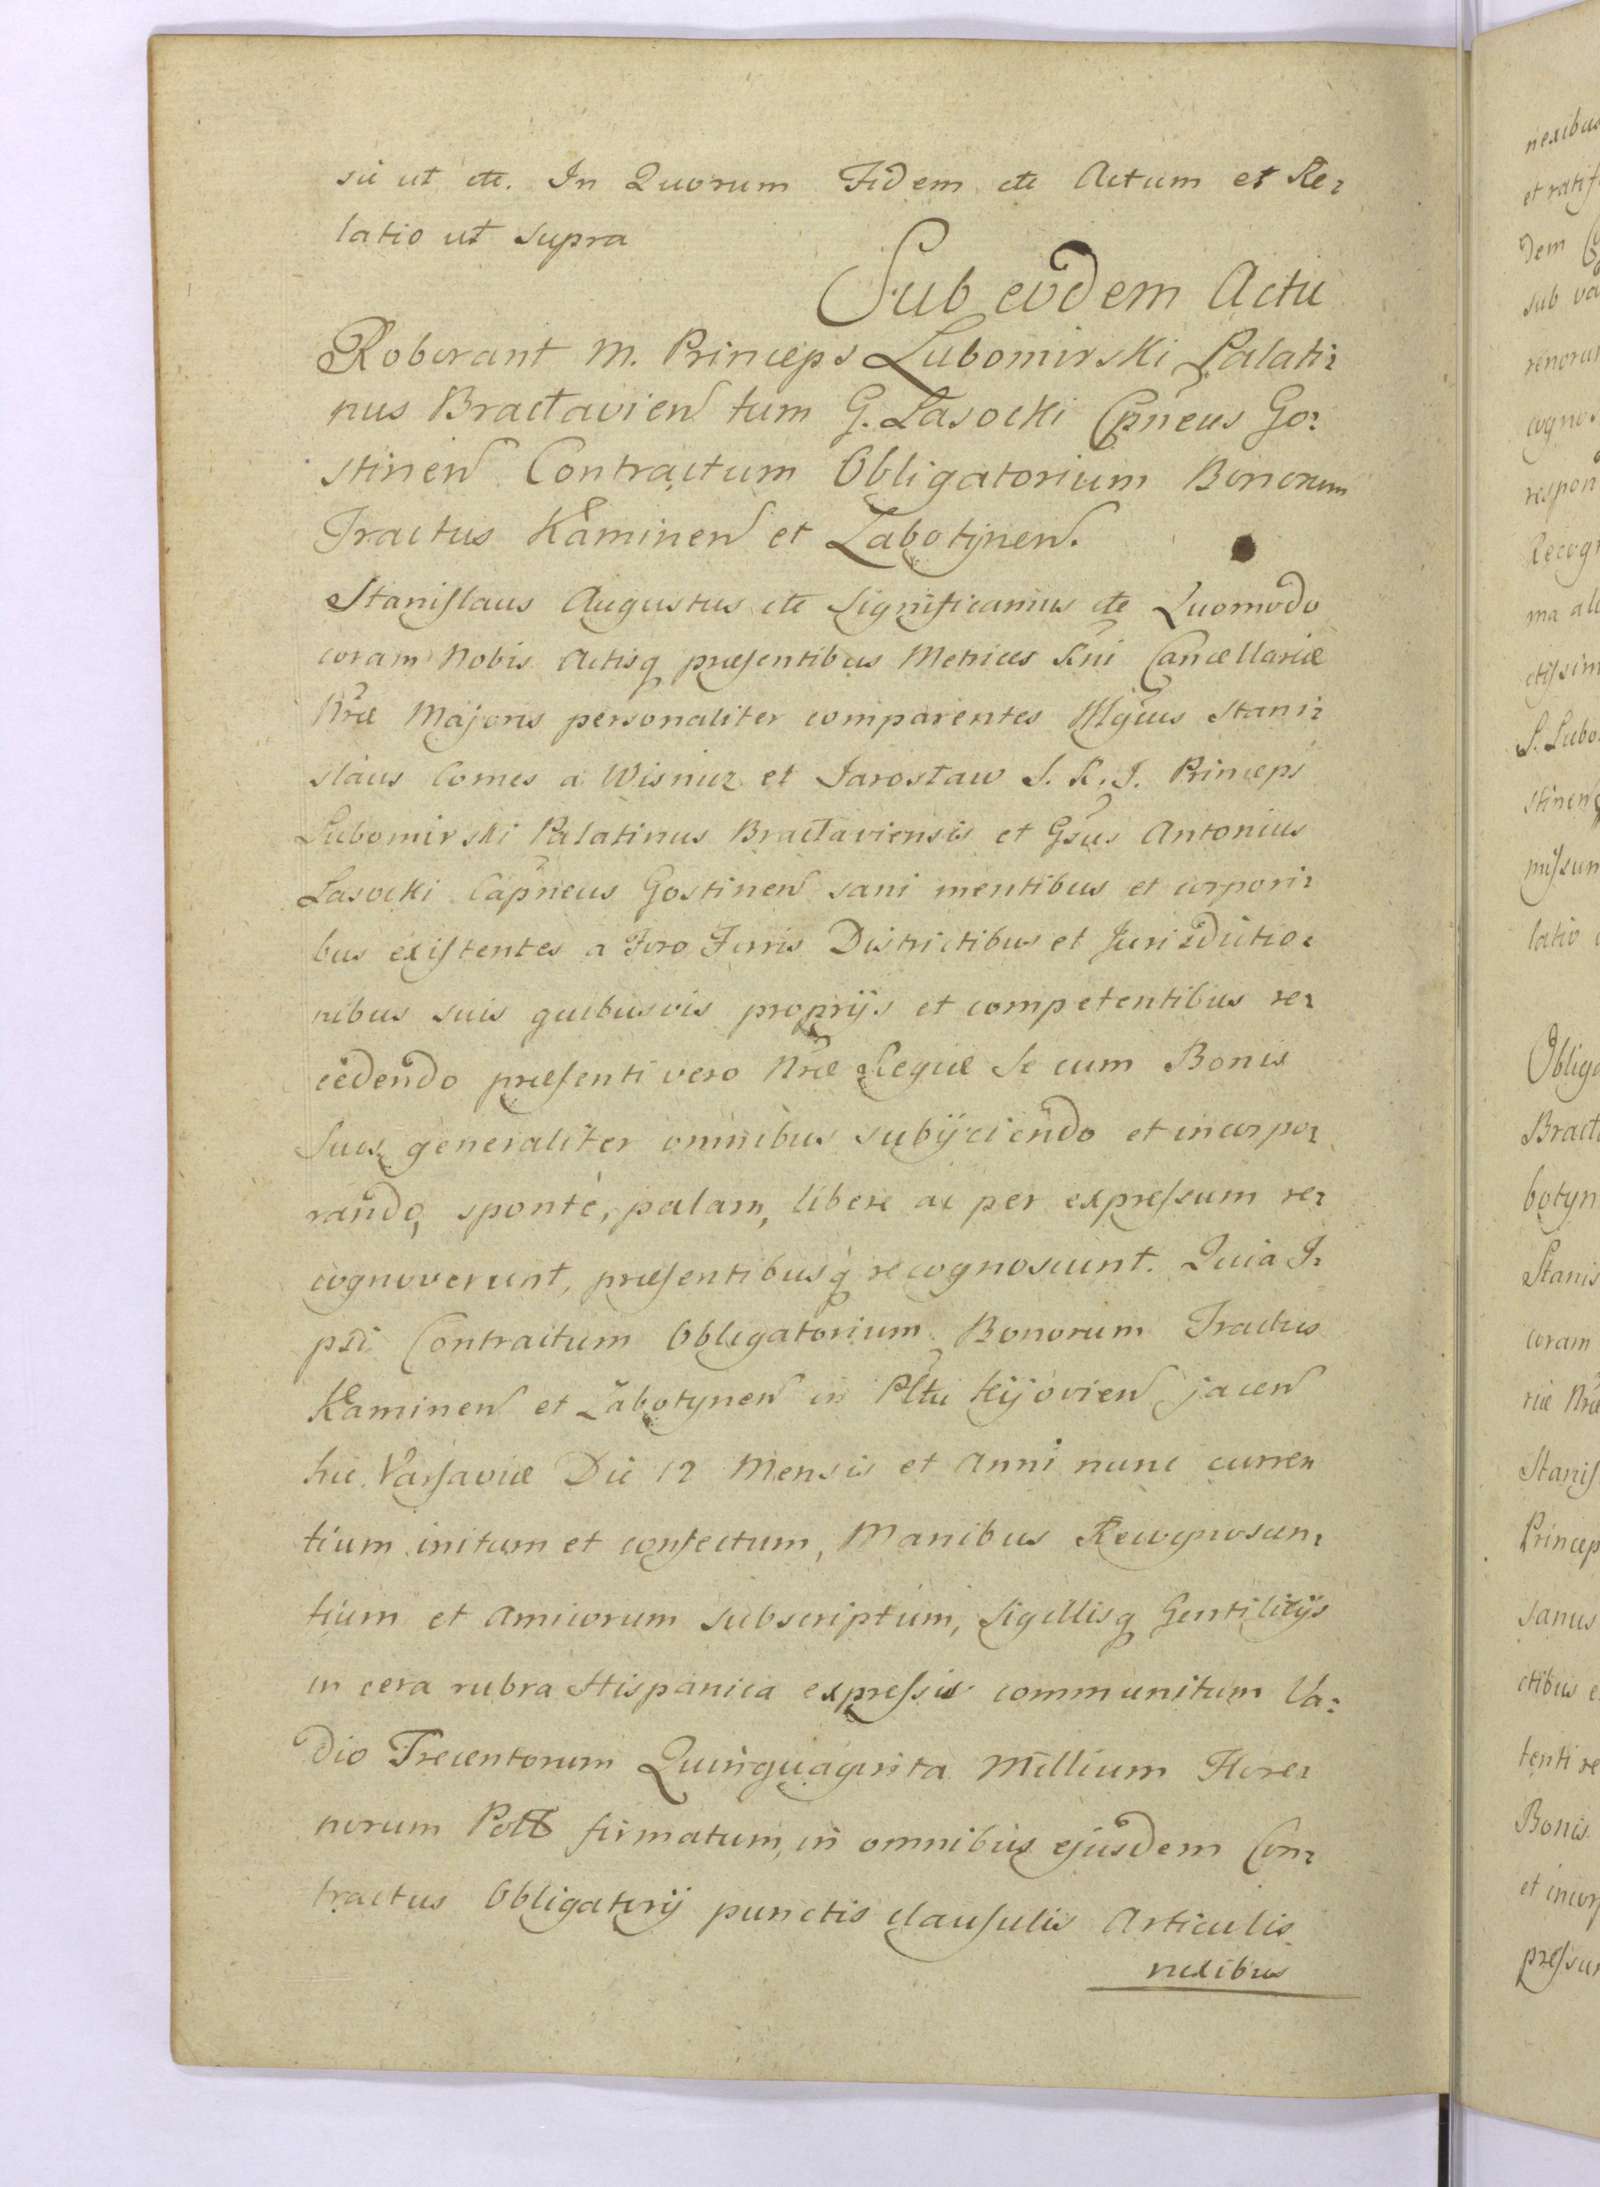 sii ut etc. In Quorum Fidem etc Actum et Re-
latio ut supra
Sub eodem Actu
Roborant M. Princeps Lubomirski Palati-
nus Bractavien tum G. Lasocki Cpneus Go-
stinen Contractum Obligatorium Bonorum
Tractus Kaminen et Zabotynen.
Stanislaus Augustus etc Significamus etc Quomodo
coram Nobis Actisq praesentibus Metrices Rni Cancellariae
Nrae Majoris personaliter comparentes Mgcus Stani-
slaus Comes a Wisnicz et Jarosław S. R. I. Princeps
Lubomirski Palatinus Bractaviensis et Gsus Antonius
Lasocki Capneus Gostinen sani mentibus et corpori-
bus existentes a Foro Terris Districtibus et Jurisdictio-
nibus suis quibusvis proprijs et competentibus re-
cedendo praesenti vero Nrae Regiae Se cum Bonis
Suis generaliter omnibus subijciendo et incorpo-
rando, sponte, palam, libere ac per expressum re-
cognoverunt, praesentibusq recognoscunt. Quia I-
psi Contractum Obligatorium Bonorum Tractus
Kaminen et Zabotynen in Pltu Kijovien jacen
hic Varsaviae Die 12 Mensis et Anni nunc curren
tium initum et confectum, Manibus Recognoscen-
tium et Amicorum subscriptum, Sigillisq Gentilitijs
in cera rubra Hispanica expressis communitum Va-
dio Trecentorum Quinquaginta Millium Flore-
norum Poll firmatum, in omnibus ejusdem Con-
tractus Obligatorij punctis clausulis Articulis
nexibus
nexibus
et ratif
dem
sub va
renorum
cognos
respon
Recogn
ma ali
ctissim
S. Lubo
stinen
missum
latio
Obliga
Bract
botyn
Stanis
coram
riae Nrae
Stanis
Princep
sanus
ctibus e
tenti re
Bonis
et incorp
pressum